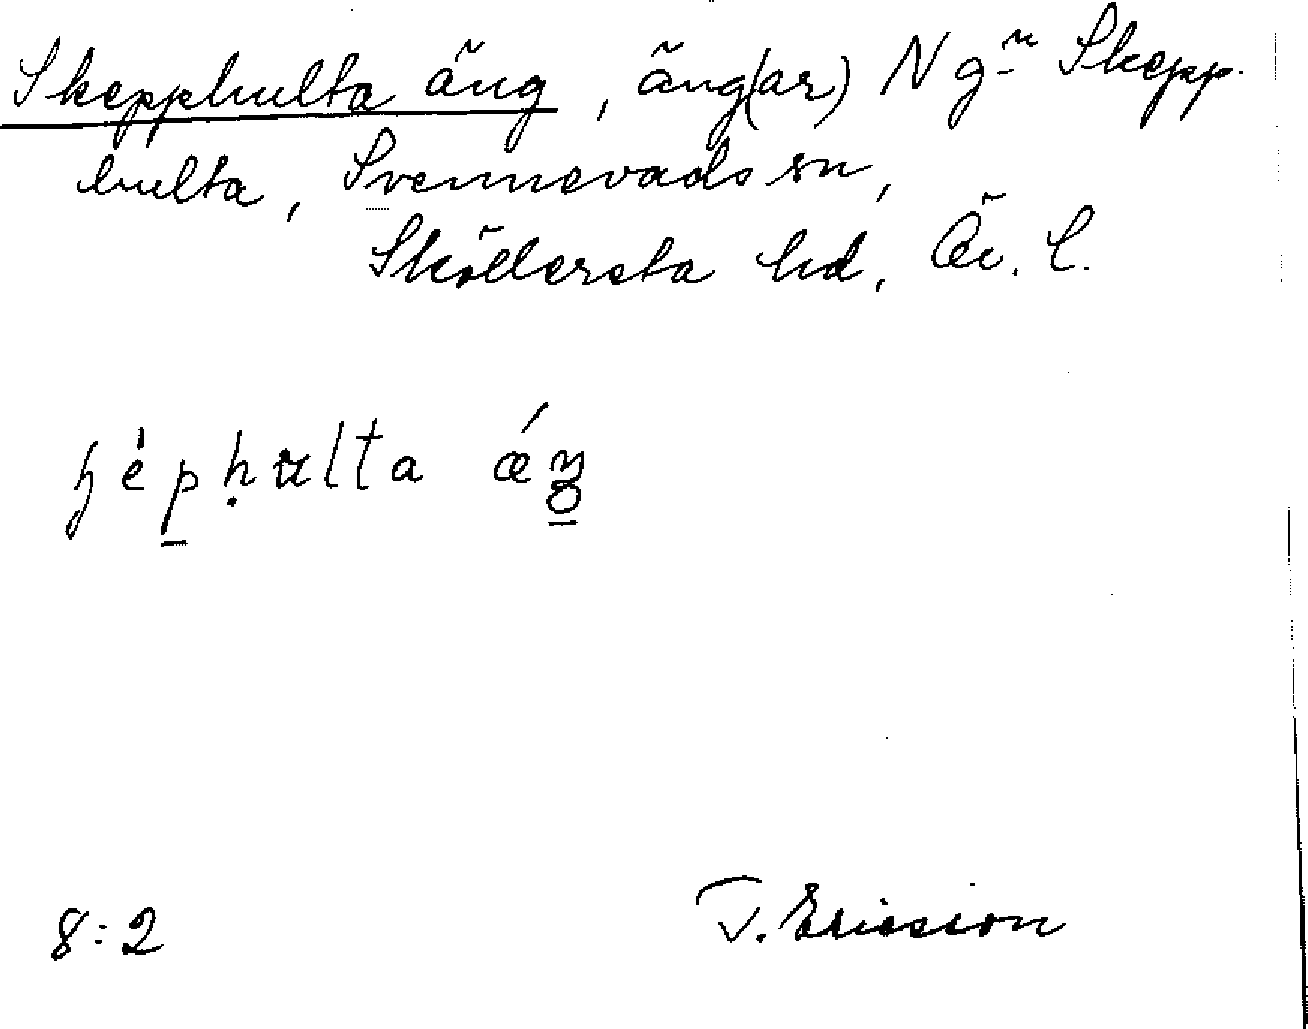 Skepphulta äng, äng(ar) N gn Skepp-
hulta, Svennevads sn,
Sköllersta hd, Ör. l.
ɧép̱ḥulta ǽŋ
8:2
T. Ericsson